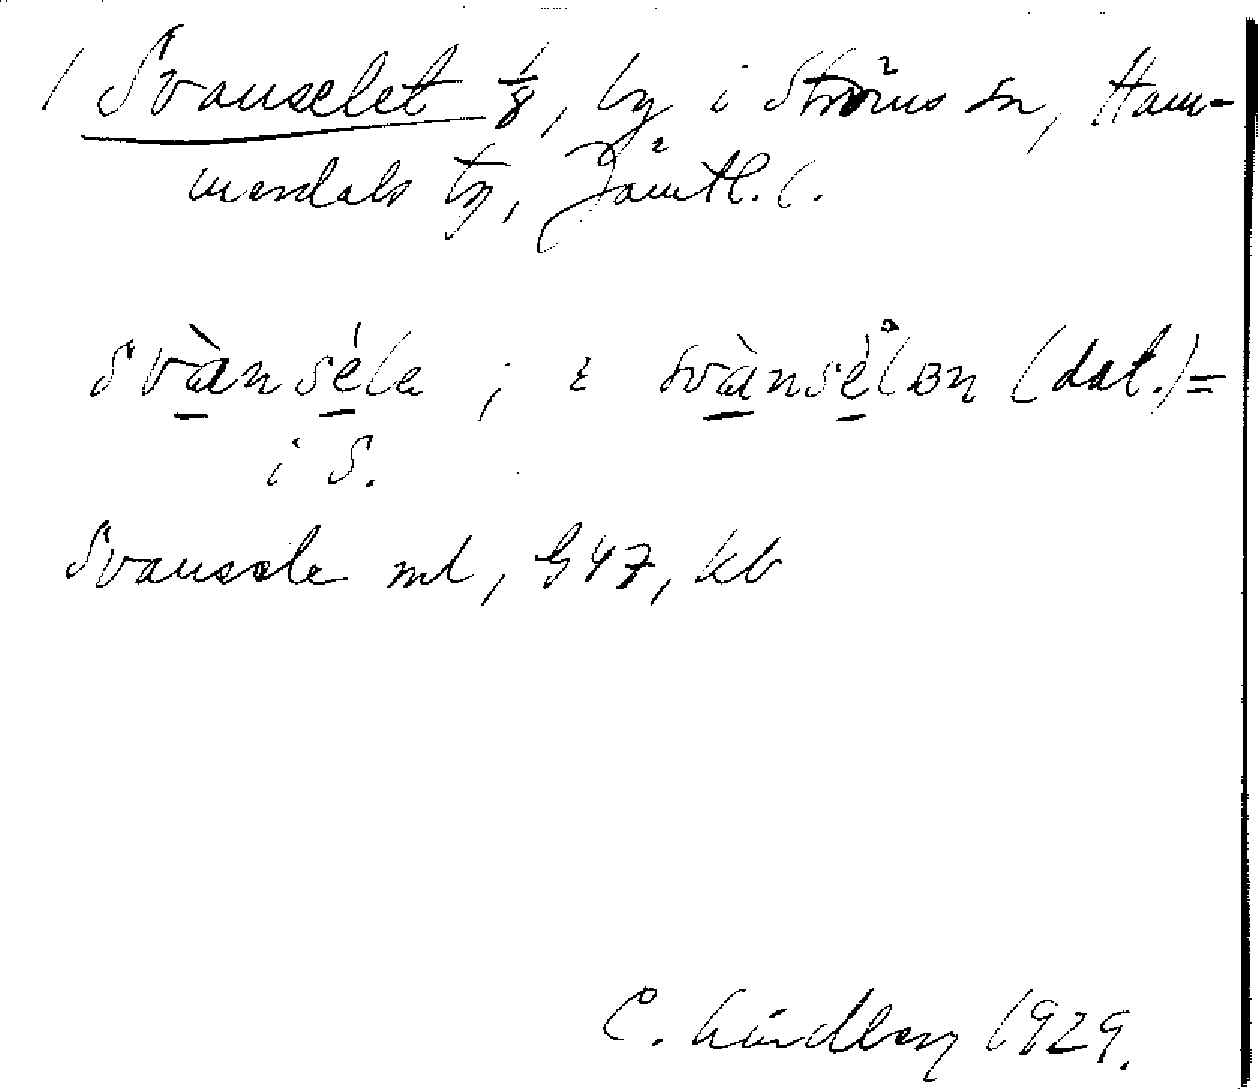 1 Svanselet 1/8, by i Ströms sn, Ham-
merdals tg, Jämtl. l.
svànséla ; i svànsèlɷn (dat.)=
i S.
Svansele ml, G47, kb
C. Lindberg 1929.